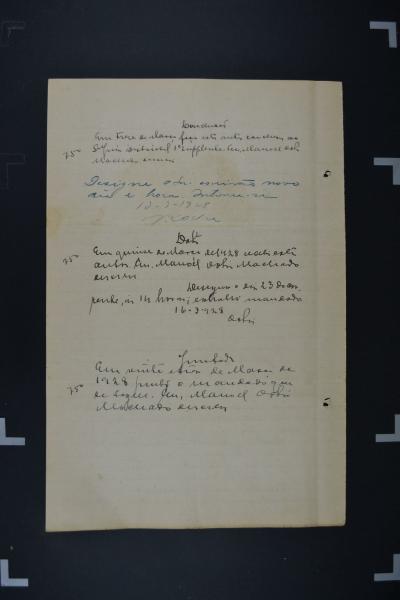 Conclusão
Em treze de Março faço este auto concluso ao
Sr. Juiz Districtal, 1º supplente. Eu, Manoel
750
Machado escrevi
Designe o sr. escrivão novo
dia e hora. Intime-se
13-3-1928
Data
Em quinze de Março de 1928 recebi este
750
autos. Eu, Manoel Machado
escrevi
Designo o dia 23 do cor-
rente, ás 14 horas; extrahi mandado
16-3-928
Juntada
Em vinte e de Março de
1928 junto o mandado que
750
se segue. Eu, Manoel
Machado escrevi